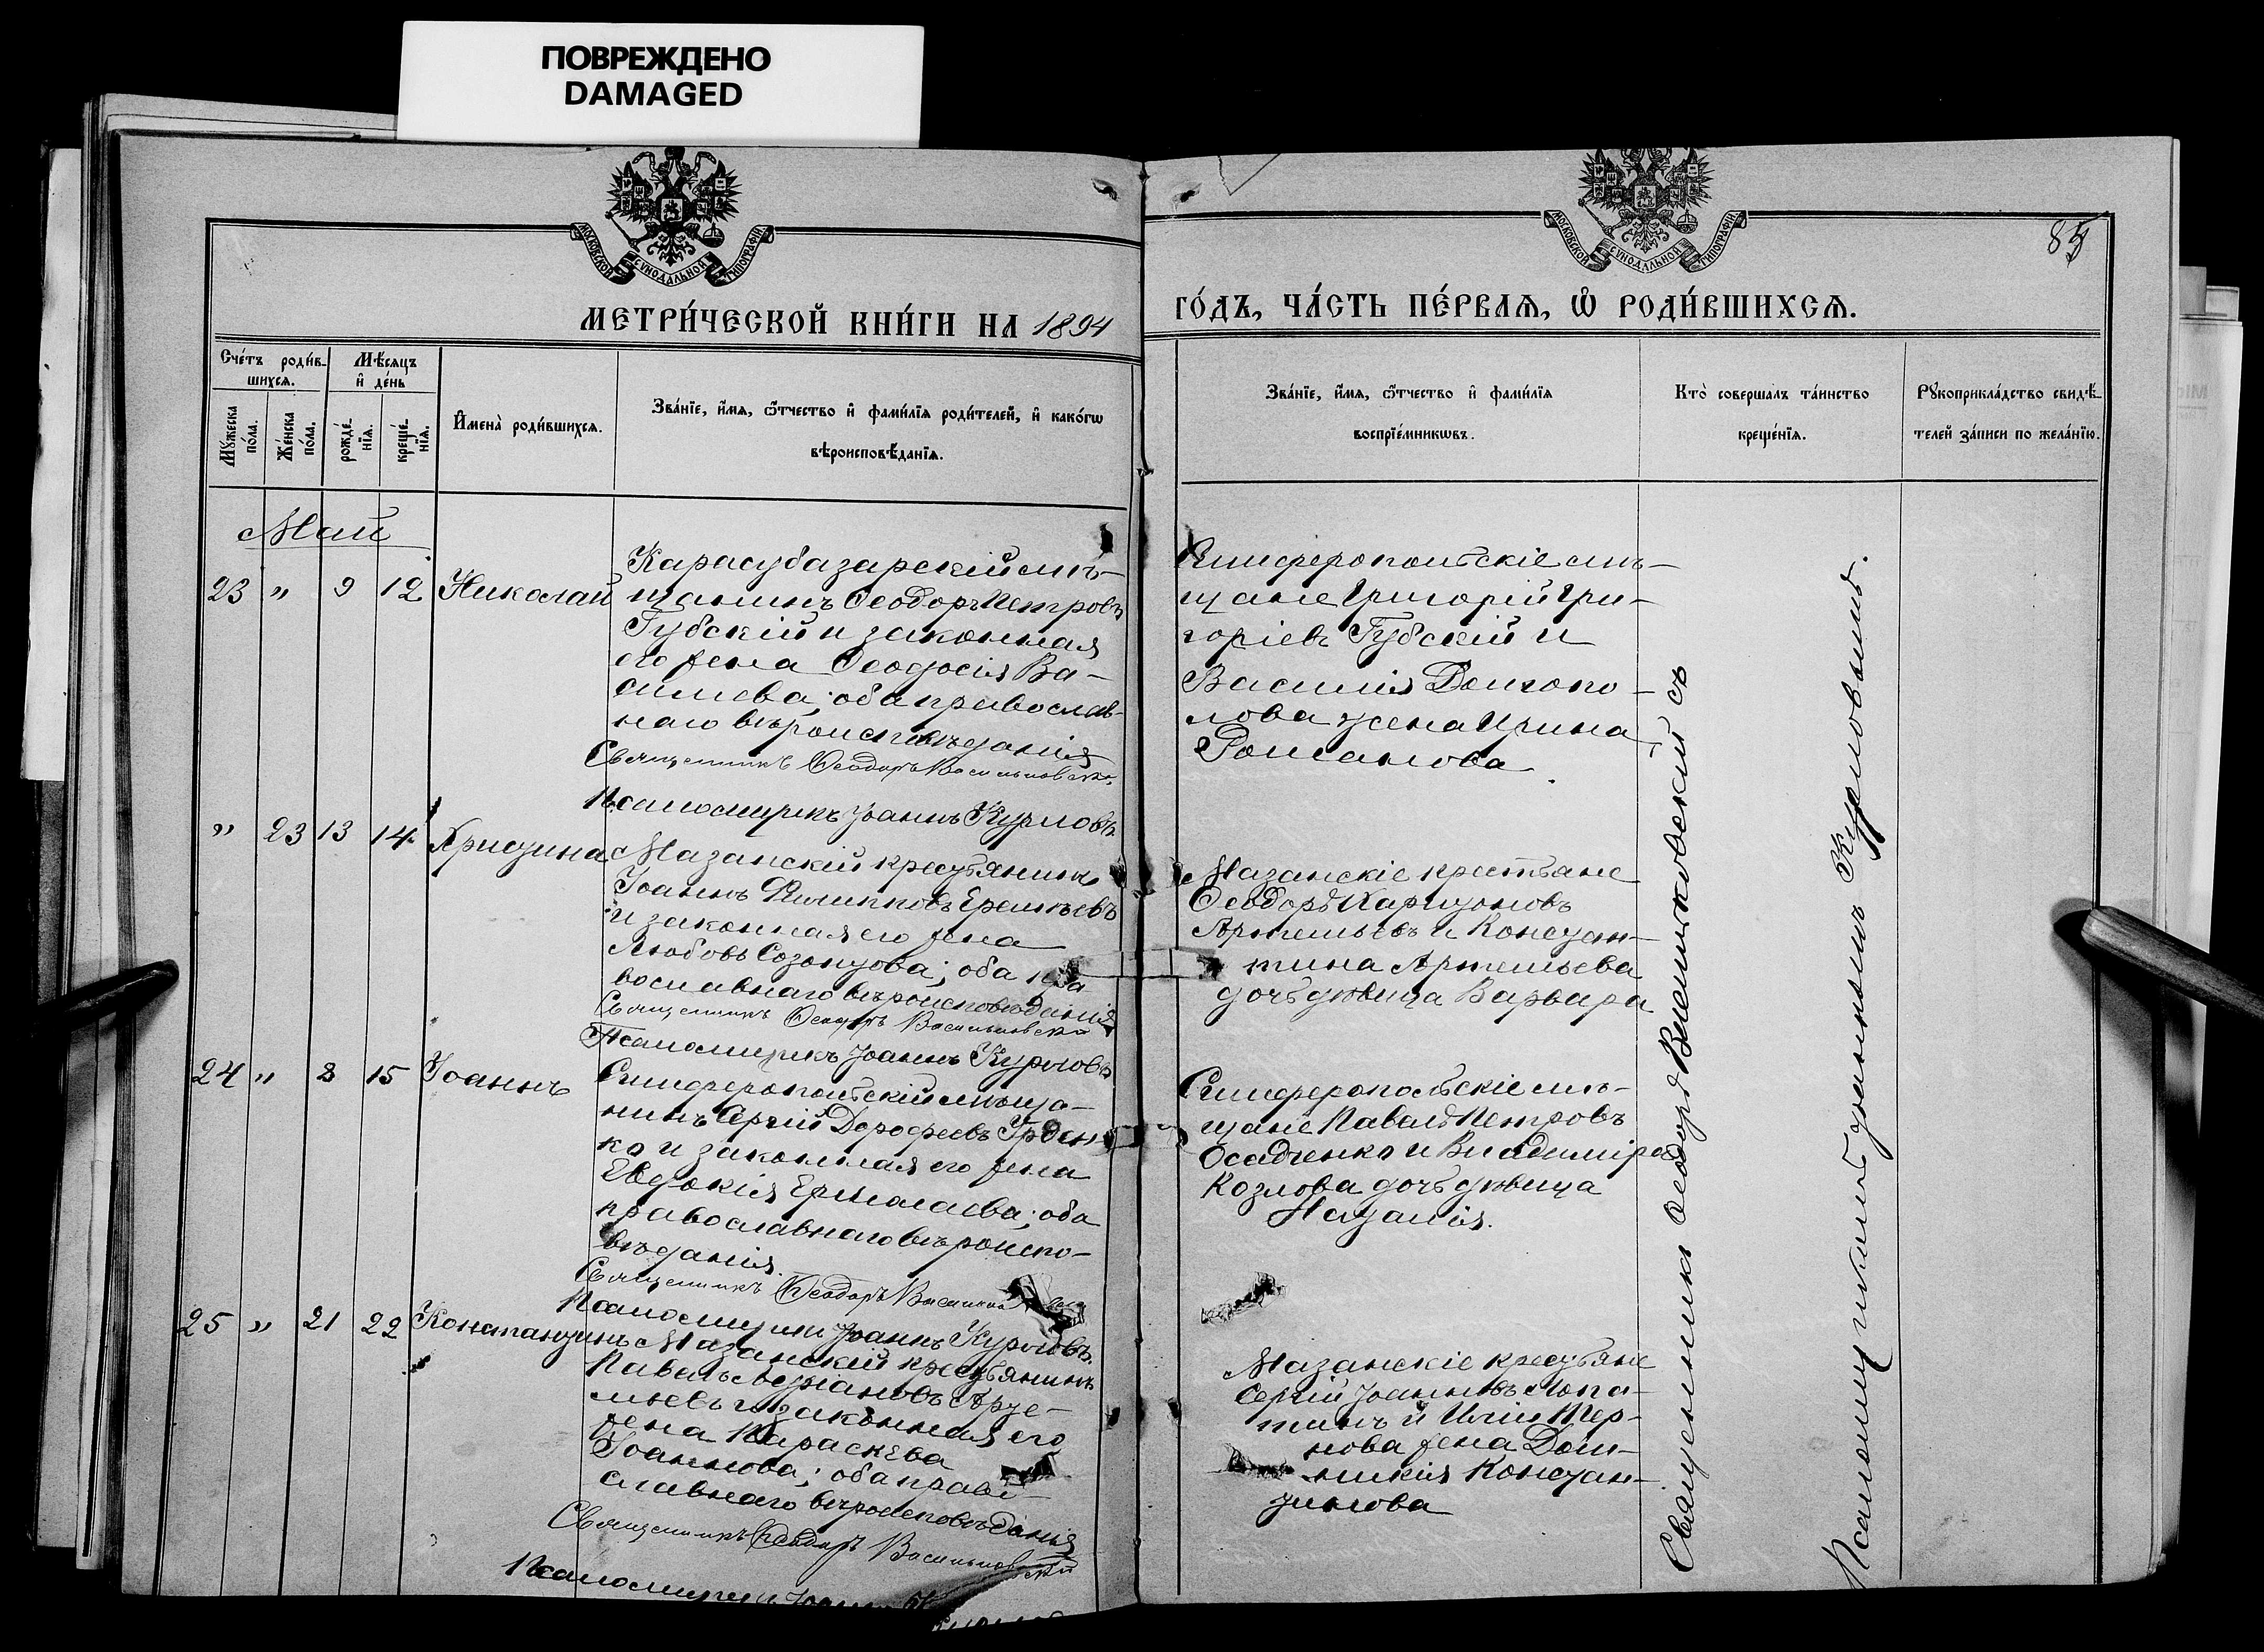 ПОВРЕЖДЕНО
DAMAGED
МОСКОВСКОЙ СѴНОДАЛЬНОЙ ТИПОГРАФІИ
МОСКОВСКОЙ СѴНОДАЛЬНОЙ ТИПОГРАФІИ
МЕТРИ́ЧЕСКОЙ КНИ́ГИ НА 1894
ГО́ДЪ, ЧА́СТЬ ПЕ́РВАѦ, Ѽ РОДИ́ВШИХСѦ.
Сче́тъ роди́в-
шихсѧ.
Мѣ́сѧцъ
и де́нь
Мꙋ́жеска
по́ла.
Же́нска
по́ла.
рожде́-
нїѧ.
креще́-
нїѧ.
Имена̀ роди́вшихсѧ.
Зва́нїе, и́мѧ, ѻ́тчество и фами́лїѧ роди́телей, и како́гѡ
вѣроисповѣ́данїѧ.
Зва́нїе, и́мѧ, ѻ́тчество и фами́лїѧ
воспрїе́мникѡвъ.
Кто̀ соверша́лъ та́инство
креще́нїѧ.
Рꙋкоприкла́дство свидѣ́-
телей за́писи по жела́нїю.
Май
23 " 9 12 Николай
Карасубазарскій мѣ-
щанинъ Ѳеодоръ Петровъ
Губскій и законная
его жена Ѳеодосія Ва-
сильева; оба православ-
наго вѣроисповѣданія
Священникъ Ѳеодоръ Васильковскій
Псаломщикъ Іоаннъ Курловъ.
Симферопольскіе мѣ-
щане Григорій Гри-
горіевъ Губскій и
Василія Долгопо-
лова жена Ирина
Романова.
" 23 13 14 Христина
Мазанскій крестьянинъ
Іоаннъ Филипповъ Еремѣевъ
и законная его жена
Любовь Созонтова; оба пра
вославнаго вѣроисповѣданія
Священникъ Ѳеодоръ Васильковскій
Псаломщикъ Іоаннъ Курловъ
Мазанскіе крестьяне
Ѳеодоръ Харитоновъ
Артемьевъ и Констан-
тина Артемьева
дочь дѣвица Варвара
24 " 8 15 Іоаннъ
Симферопольскій мѣща-
нинъ Сергій Дорофеевъ
ко и законная его жена
Евдокія Ермолаева; оба
православнаго вѣроиспо-
вѣданія.
Священникъ Ѳеодоръ
Псаломщикъ Іоаннъ Курловъ.
Симферопольскіе мѣ-
щане Павелъ Петровъ
Осадченко и Владиміра
Козлова дочь дѣвица
Наталія.
25 " 21 22 Константинъ
Мазанскій крестьянинъ
Павелъ Арте-
мьевъ и законная его
жена Параскева
Іоаннова; оба право
славнаго вѣроисповѣданія
Священникъ Ѳеодоръ Васильковскій
Псаломщикъ Іоаннъ
Мазанскіе крестьяне
Сергій Іоанновъ Лопа-
тинъ и Иліи Тер-
нова жена Дом-
никія Констан-
тинова
Священникъ Ѳеодоръ Васильковскій съ
Псаломщикомъ Іоанномъ Курловымъ.